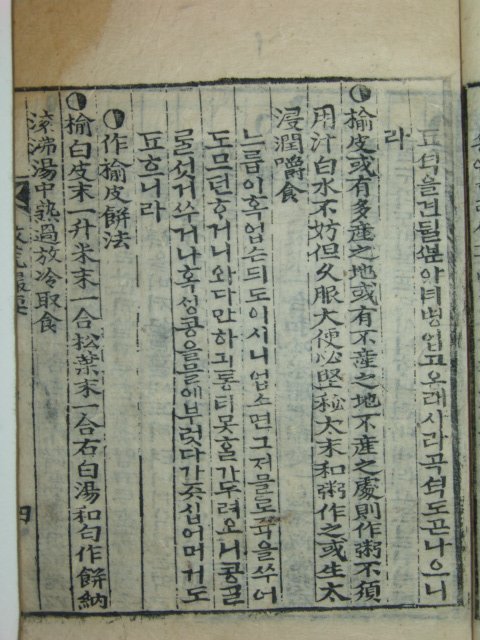 됴셕을견딜ᄲᅮᆫ아녀병업고오래사라곡셕도곤나으니
라
楡皮或有多産之地或有不産之地不産之處則作粥不須
用汁白水不妨但久服大便必堅秘太末和粥作之或生太
浸潤嚼食
느릅이혹업슨ᄃᆡ도이시니업스면그저믈로쥭을쑤어
도므던ᄒᆞ거니와다만하긔통티못ᄒᆞᆯ가두려오니콩ᄀᆞᆯ
ᄅᆞᆯ섯거쑤거나혹성콩을믈에부럿다가ᄌᆞᆺ십어머거도
됴흐니라
作楡皮餠法
楡白皮末一升米末一合松葉末一合右白湯和匀作餠納
滾沸湯中熟過放冷取食
四